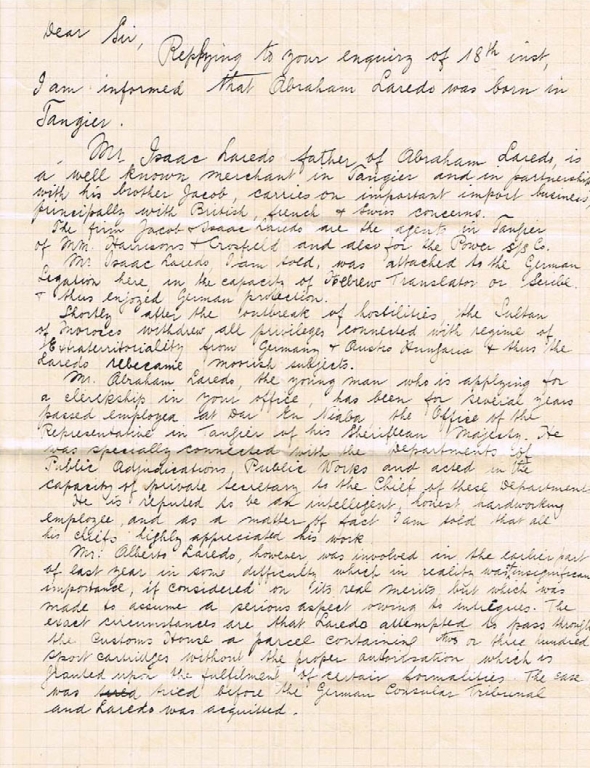 Dear Sir,
Replying to your enquiry of 18th inst,
I am informed that Abraham Laredo was born in
Tangier.
Mr. Isaac Laredo father of Abraham Laredo, is
a well known merchant in Tangier and in partnership
with his brother Jacob, carries on important import business,
principally with British, french & swiss concerns.
The firm Jacob & Isaac Laredo are the agents in Tangier
of MM. Harrisons & Crosfield and also for the Power S/S Co.
Mr Isaac Laredo, I am told, was attached to the German
Legation here, in the capacity of Hebrew Translator or Scribe
& thus enjoyed German protection.
Shortly after the outbreak of hostilities the Sultan
of Morocco withdrew all privileges connected with regime of
Extraterritoriality from Germany & Austro Hungaria & thus the
Laredo rebecame moorish subjects.
Mr. Abraham Laredo, the young man who is applying for
a clerkship in your office, has been for several years
passed employed at Dar En Niaba the Office of the
Representative in angier of his Sheriffean Majesty. He
was specially connected with the Departments of
Public Adjudications, Public Works and acted in the
capacity of private Secretary to the Chief of these Departments
He is reputed to be an intelligent, honest, hardworking
employee, and as a matter of fact I am told that all
his chiefs highly appreciated his work
Mr: Alberto Laredo, however was involved in the earlier part
of last year in some difficulty which in reality was insignificant
importance, if considered on its real merits, but which was
made to assume a serious aspect owing to intrigues. The
exact circumstances are that Laredo attempted to pass through
the Customs House a parcel containing two or three hundred
sport cartridges without the proper autorisation which is
granted upon the fulfilment of certain formalities The case
was tried before the German Consular Tribunal
and Laredo was acquitted.